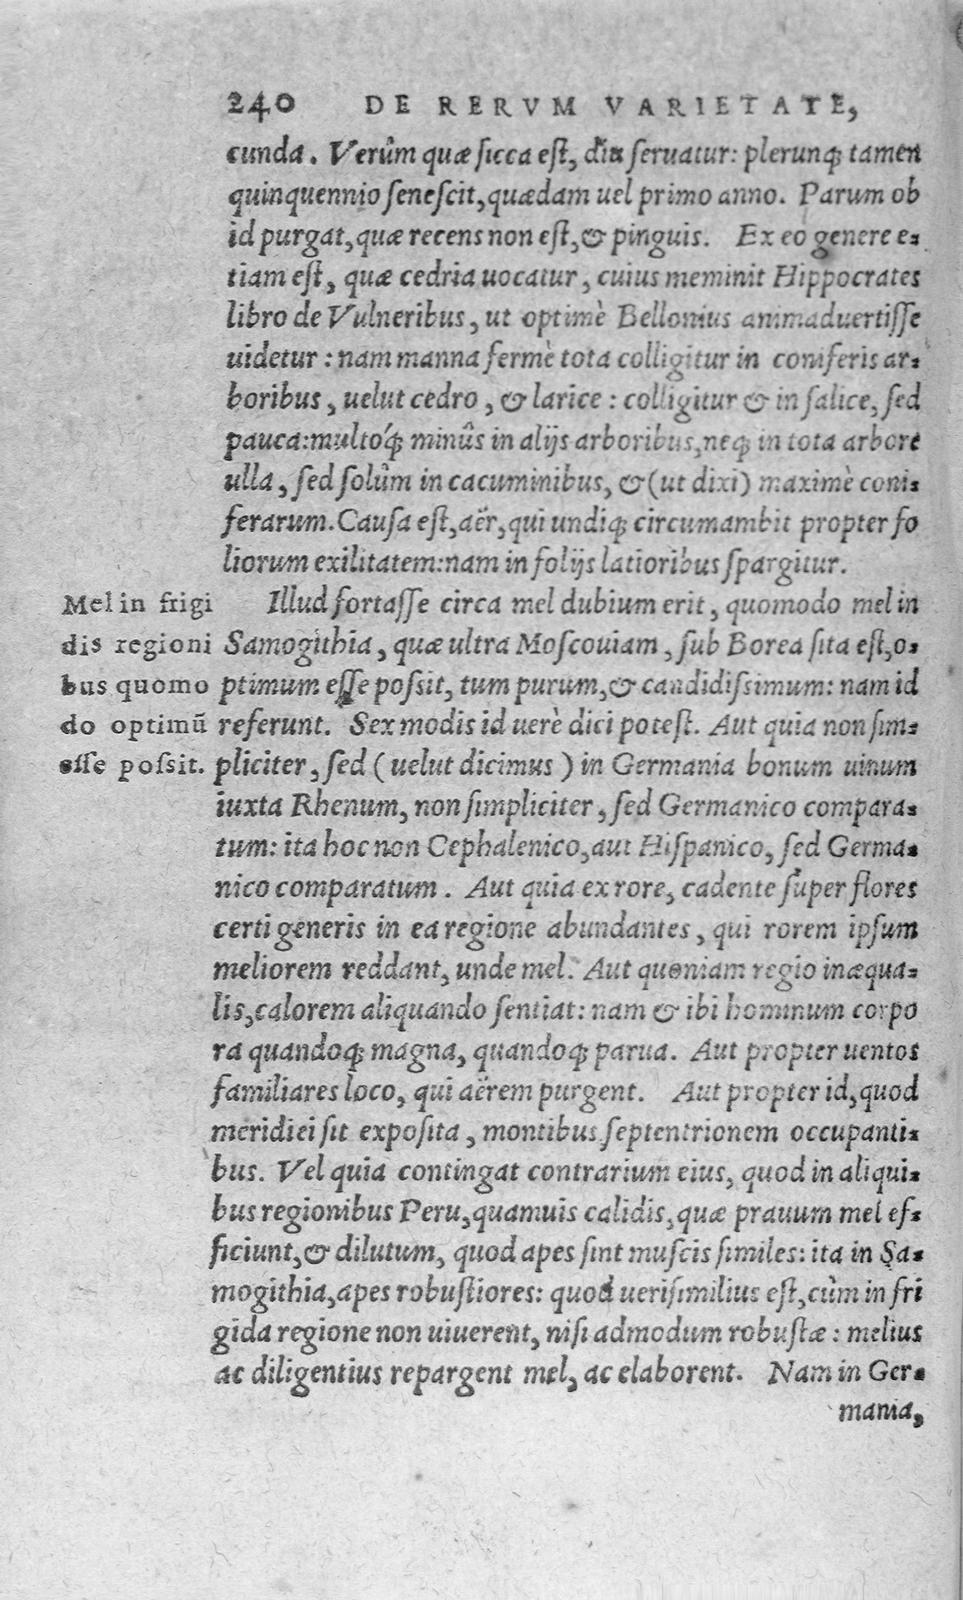 240 DE RERVM VARIETATE,
cunda. Verûm quæ sicca est, diu seruatur: plerunq́; tamen
quinquennio senescit, quædam uel primo anno. Parum ob
id purgat, quæ recens non est, & pinguis. Ex eo genere e-
tiam est, quæ cedria uocatur, cuius meminit Hippocrates
libro de Vulneribus, ut optimè Bellonius animaduertisse
uidetur: nam manna fermè tota colligitur in coniferis ar-
boribus, uelut cedro, & larice: colligitur & in salice, sed
pauca: multóq́; minûs in alijs arboribus, neq́; in tota arbore
ulla, sed solûm in cacuminibus, & (ut dixi) maximè coni-
ferarum. Causa est, aër, qui undiq́; circumambit propter fo
liorum exilitatem: nam in folijs latioribus spargitur.
Mel in frigi
dis regioni
bus quomo
do optimũ
esse possit.
Illud fortasse circa mel dubium erit, quomodo mel in
Samogithia, quæ ultra Moscouiam, sub Borea sita est, o-
ptimum esse possit, tum purum, & candidissimum: nam id
referunt. Sex modis id uerè dici potest. Aut quia non sim-
pliciter, sed (uelut dicimus) in Germania bonum uinum
iuxta Rhenum, non simpliciter, sed Germanico compara-
tum: ita hoc non Cephalenico, aut Hispanico, sed Germa-
nico comparatum. Aut quia ex rore, cadente super flores
certi generis in ea regione abundantes, qui rorem ipsum
meliorem reddant, unde mel. Aut quoniam regio inæqua-
lis, calorem aliquando sentiat: nam & ibi hominum corpo
ra quandoq́; magna, quandoq́; parua. Aut propter uentos
familiares loco, qui aërem purgent. Aut propter id, quod
meridiei sit exposita, montibus septentrionem occupanti-
bus. Vel quia contingat contrarium eius, quod in aliqui-
bus regionibus Peru, quamuis calidis, quæ prauum mel ef-
ficiunt, & dilutum, quod apes sint muscis similes: ita in Sa-
mogithia, apes robustiores: quod uerisimilius est, cùm in fri
gida regione non uiuerent, nisi admodum robustæ: melius
ac diligentius repargent mel, ac elaborent. Nam in Ger-
mania,